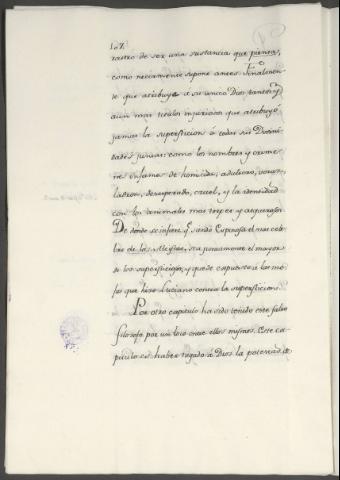 107.
rastro de ser una sustancia que piensa,
como neciamente supone antes. Finalmen-
te que atribuye á su unico Dios tantos, y
aun mas titulos injuriosos que atribuyó
jamas la supersticion á todas sus Deini-
dades juntas: como los nombres y carac-
res infames de homicida, adultero,
ladron, desesperado, cruel, y la identidad
con los animales mas torpes y asquerosos.
De donde se infiere q.e siendo Espinosa el mas cele-
bre de los Atheistas, era juntamente el mayor
de los supersticiosos, y quede expuesto á las mo-
fas que hizo Luciano contra la supersticion.
Por otro capitulo ha sido tenido este falso
filosofo por un loco entre ellos mismos. Este ca-
pitulo es haber negado á Dios la potestad de